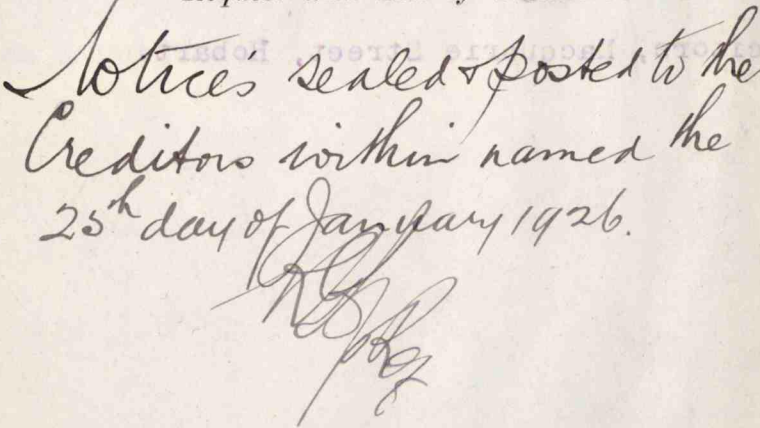 Notices sealed & posted to the
Creditors within named the
25th day of January 1926.